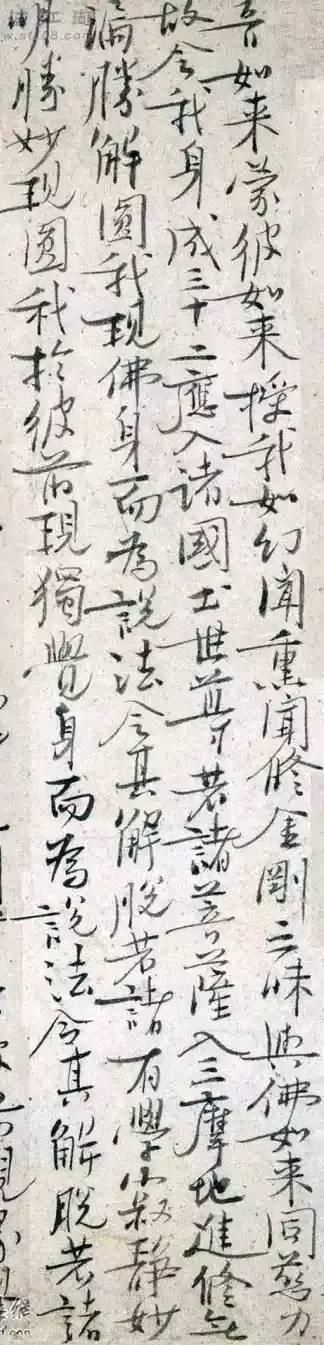 音如来蒙彼如来授我如幻聞熏聞修金剛三昧與佛如来同慈力
故令我身成三十二應入諸國土世尊若諸菩薩入三摩地進修无
漏勝解圓我現佛身而為說法令其解脱若諸有學寂静妙
明勝妙現圓我於彼前現獨覺身而為說法令其解脱若諸